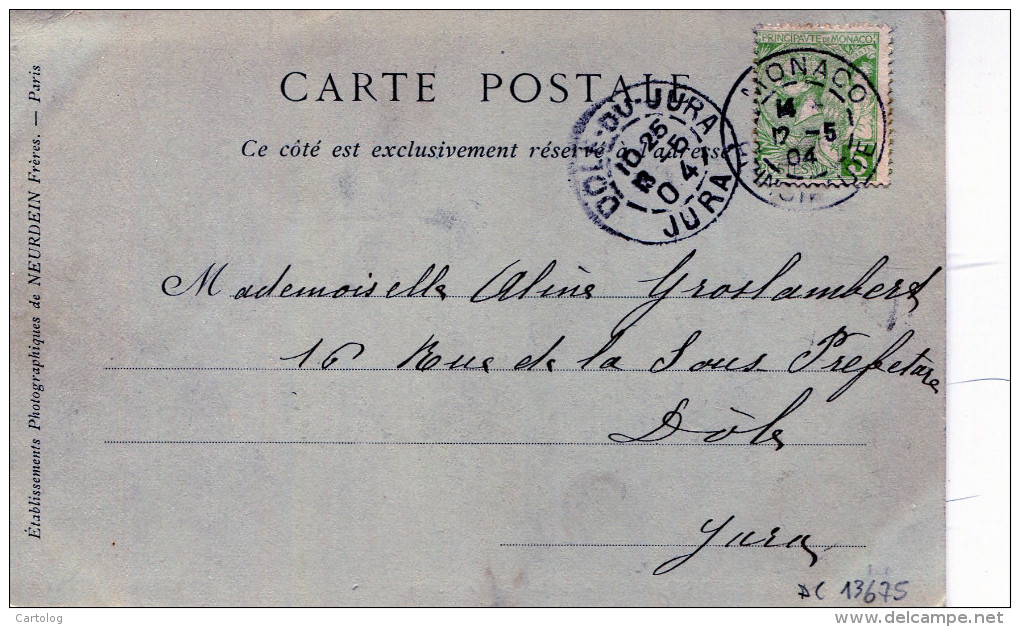 CARTE POSTALE
Ce côté est exclusivement réservé à l'adresse
PRINCIPAUTÉ DE MONACO
MONACO
12 -5
04
DOLE-DU-JURA
10-25
13 -5
04
JURA
Mademoiselle Aline Groslambert
16 Rue de la Sous Prefecture
Dôle
Jura
Établissements Photographiques de NEURDEIN Frères. — Paris
13675
Cartolog
www.delcampe.net